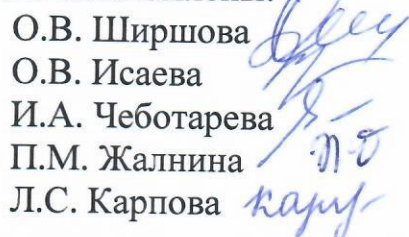 О.В. Ширшова
О.В. Исаева
И.А. Чеботарева
П.М. Жалнина
Л.С. Карпова